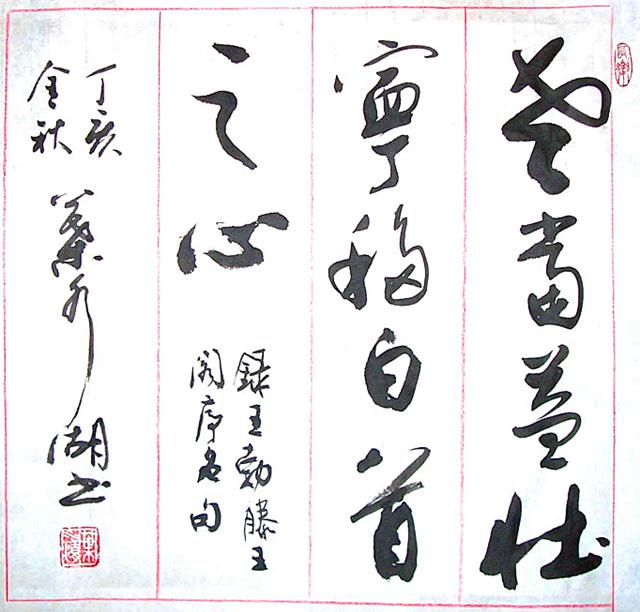 老當益壯
寧移白首
之心
録王勃滕王
阁序名句
丁亥
金秋
葉水湖书